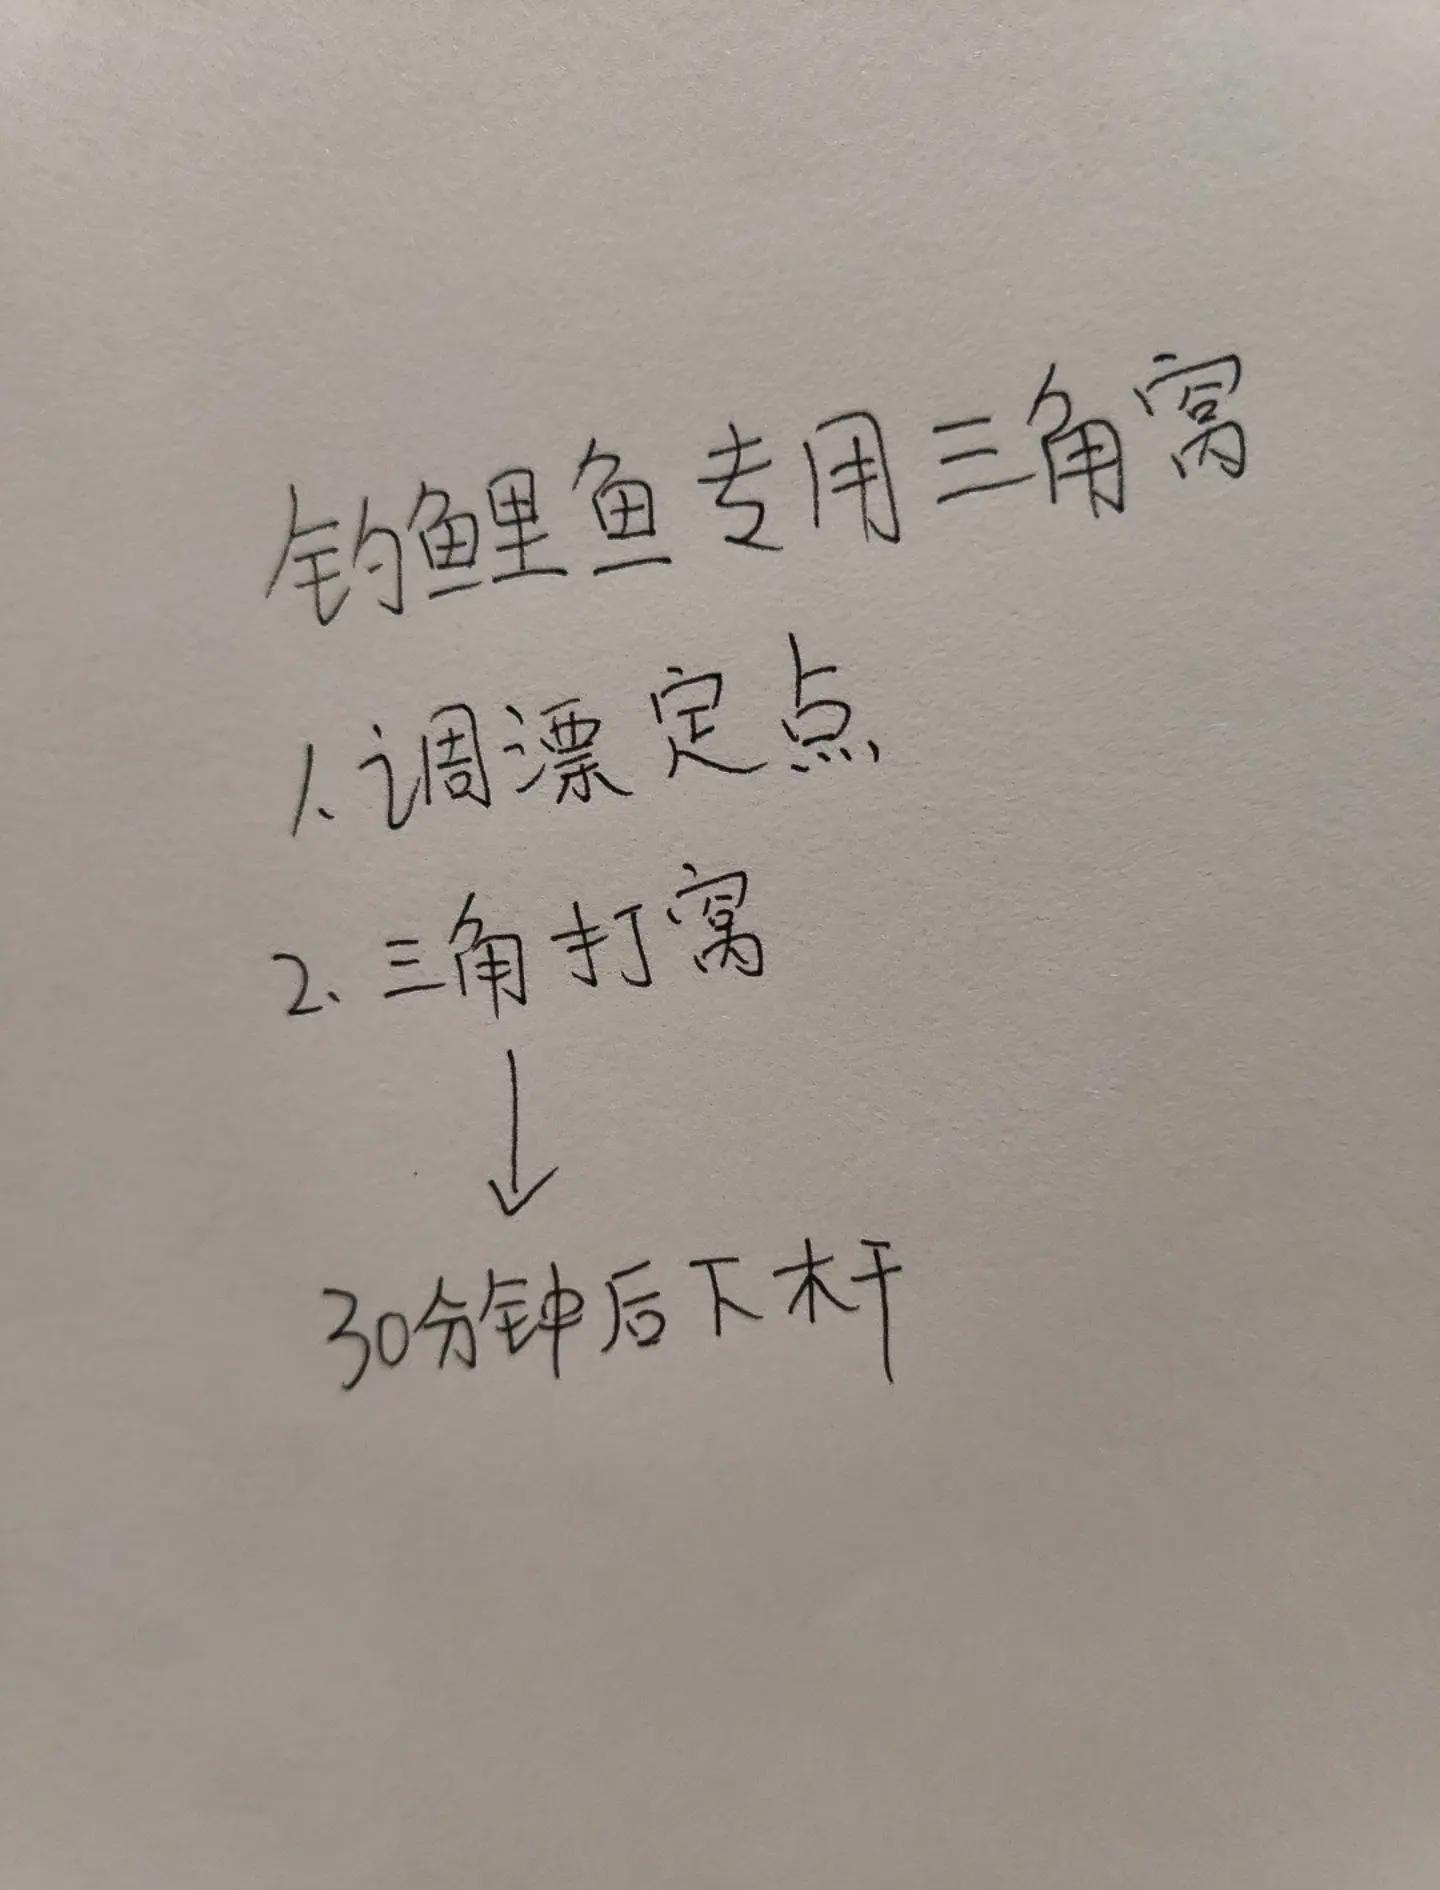 钓鲤鱼专用三角窝
1、调漂定点
2、三角打窝
↓
30分钟后下杆